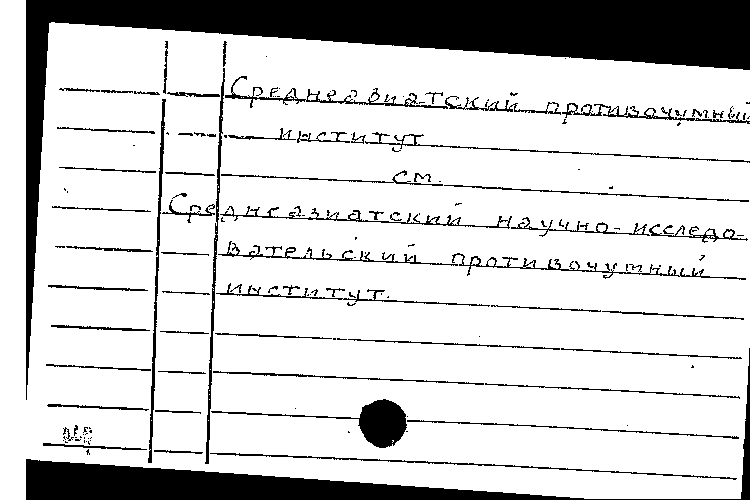 Среднеазиатский противочумный
институт
см.
Среднеазиатский научно-исследо-
вательский противочумный
институт.